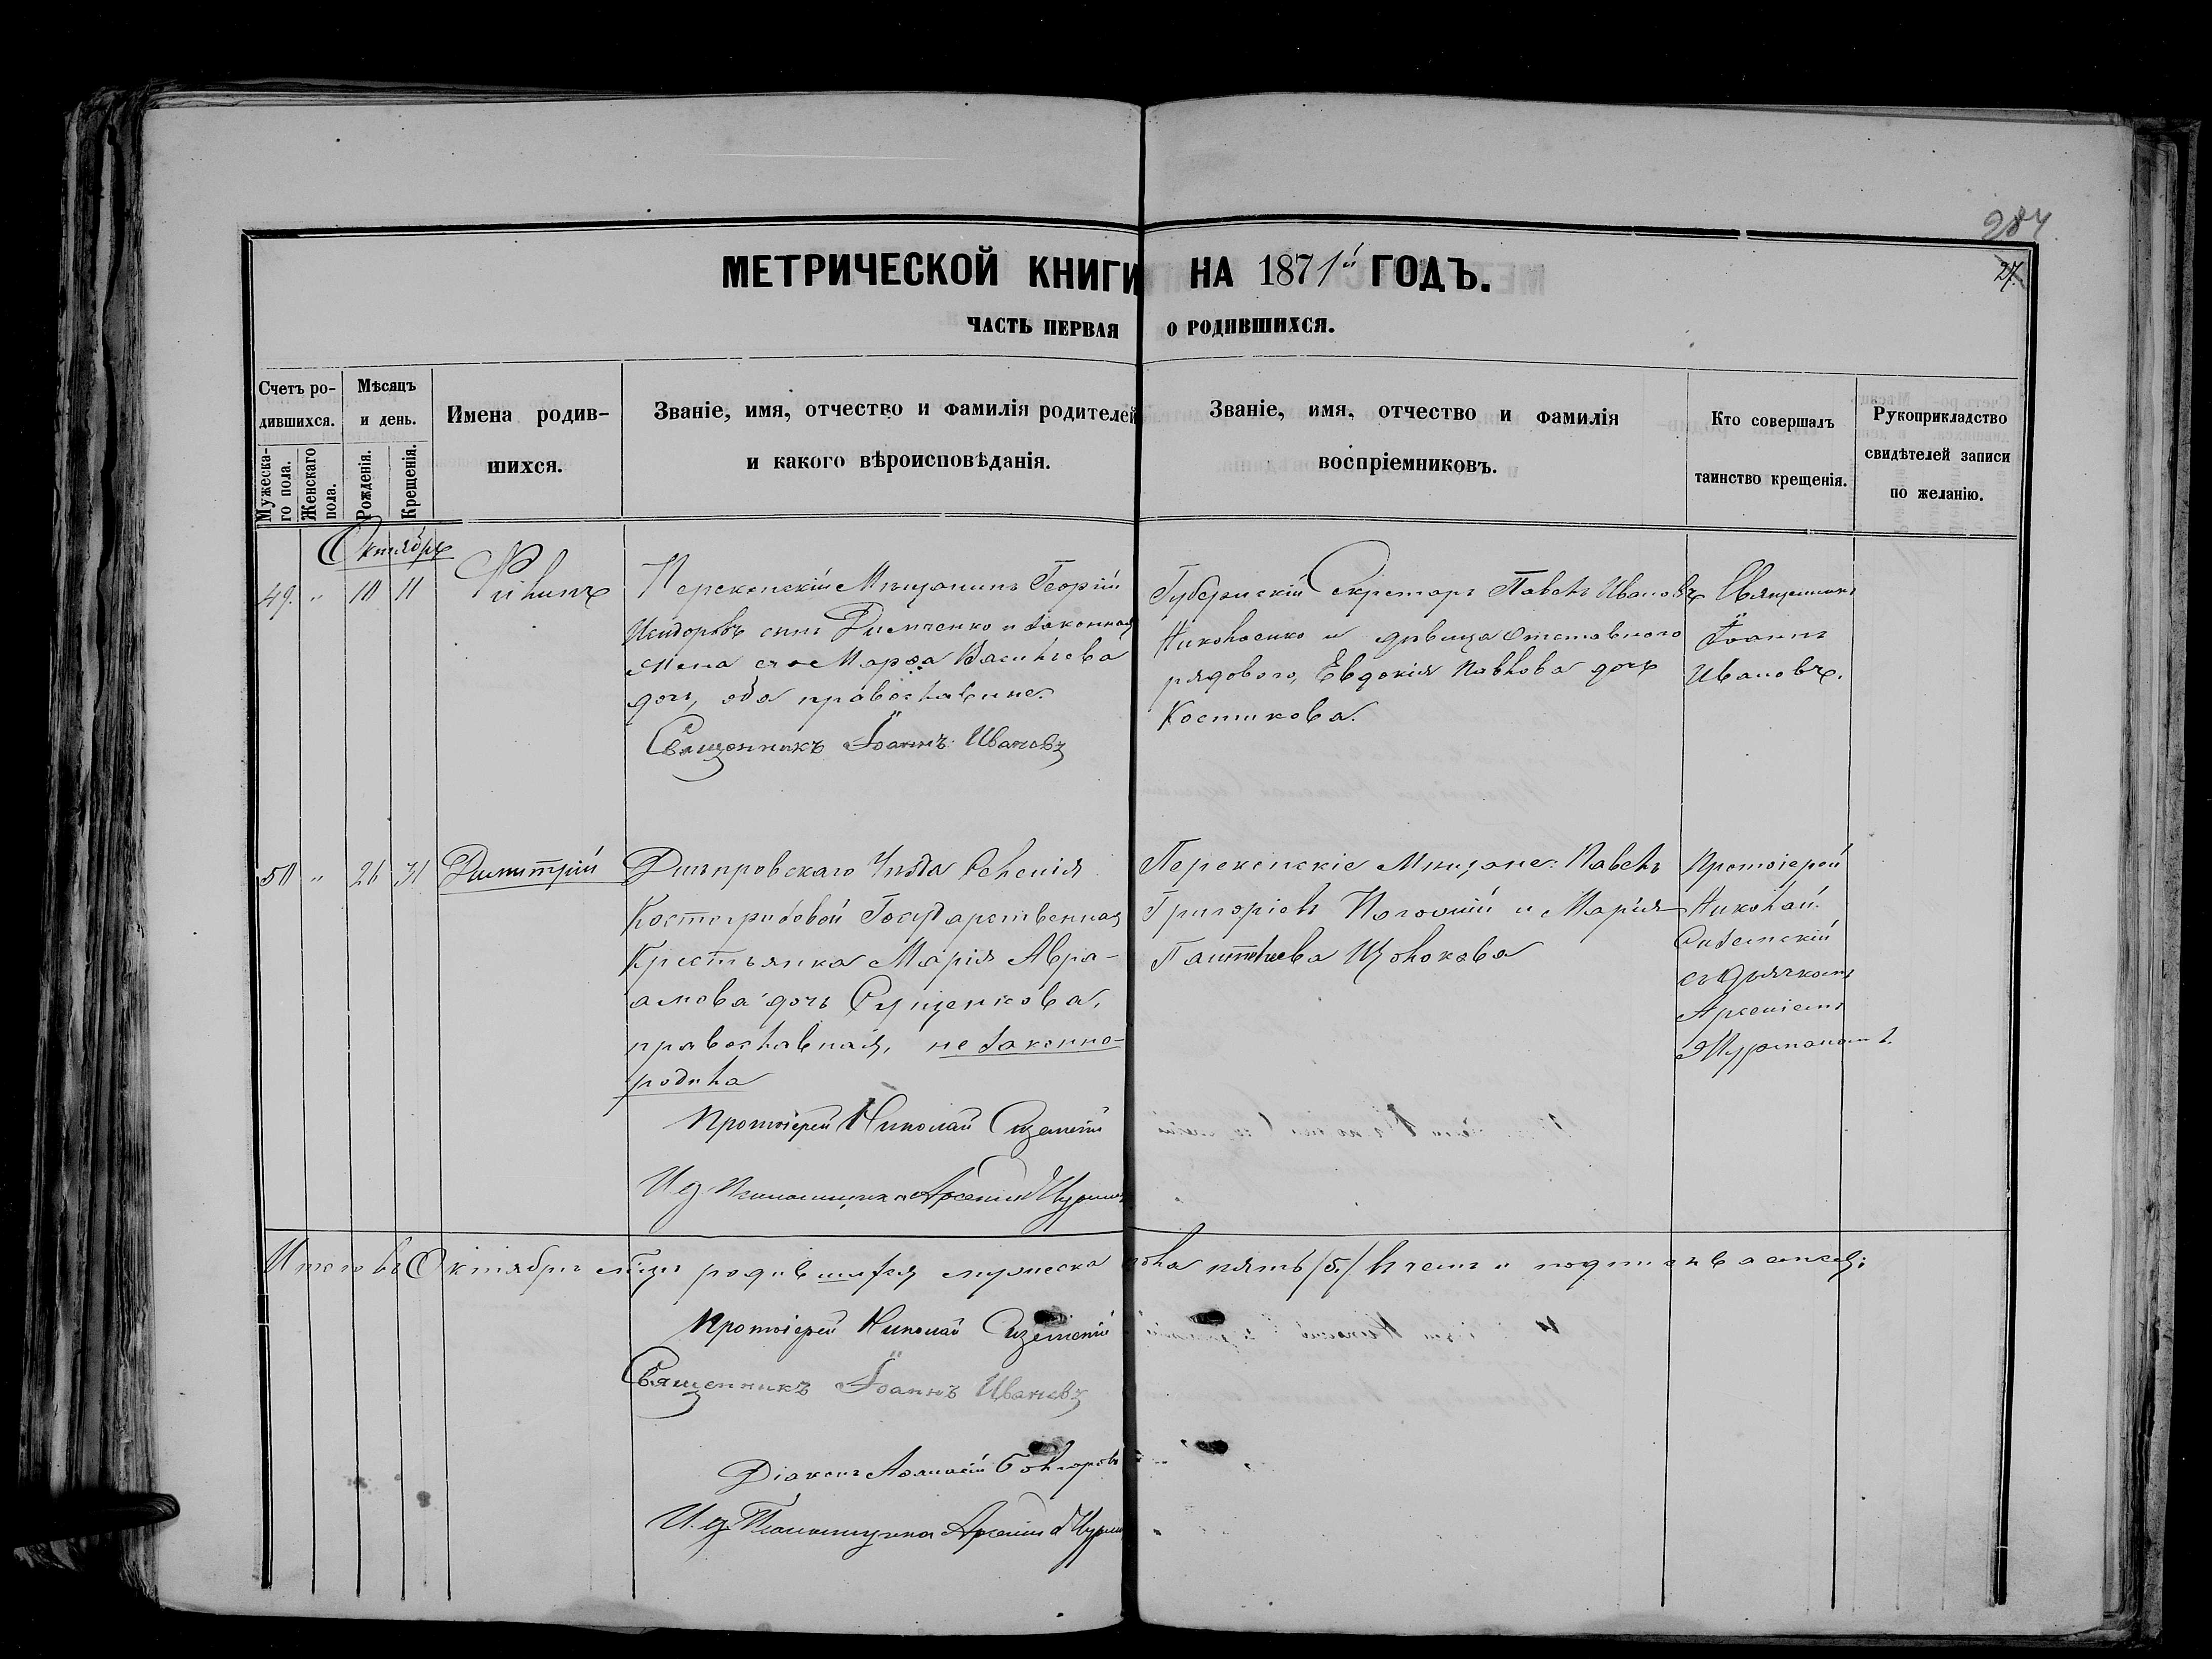 284
27.
МЕТРИЧЕСКОЙ КНИГИ НА 1871й ГОДЪ.
ЧАСТЬ ПЕРВАЯ О РОДИВШИХСЯ.
Счетъ ро-
дившихся.
Мужеска-
го пола.
Женскаго
пола.
Мѣсяцъ
и день.
Рожденія.
Крещенія.
Имена родив-
шихся.
Званіе, имя, отчество и фамилія родителей
и какого вѣроисповѣданія.
Званіе, имя, отчество и фамилія
воспріемниковъ.
Кто совершалъ
таинство крещенія.
Рукоприкладство
свидѣтелей записи
по желанію.
Октябрь
49. " 10 11
Филипъ
Перекопскій Мѣщанинъ Георгій
Исидоровъ сынъ Димченко и законная
жена его Марѳа Васильева
дочь, оба православные.
Священникъ Іоаннъ Ивановъ
Губернскій Секретарь Павелъ Ивановъ
Николаенко и дѣвица отставного
рядового, Евдокія Павлова дочь
Костикова.
Священникъ
Іоаннъ
Ивановъ.
50 " 26 31
Димитрій
Днѣпровскаго Уѣзда Селенія
Костогризовой Государственная
Крестьянка Марія Авра-
амова дочь Сущенкова,
православная, не законно-
родила
Протоіерей Николай
И д Арсеній
Перекопскіе Мѣщане: Павелъ
Григоріевъ и Марія
Щолокова
Протоіерей
Николай
съ Дьячкомъ
Арсеніемъ
Итого въ Октябрѣ мѣсяцѣ родившихся мужеска пола пять /5/ въ чемъ и подписываемся:
Протоіерей Николай
Священникъ Іоаннъ Ивановъ
Діаконъ Аѳанасій
И. д. Арсеній